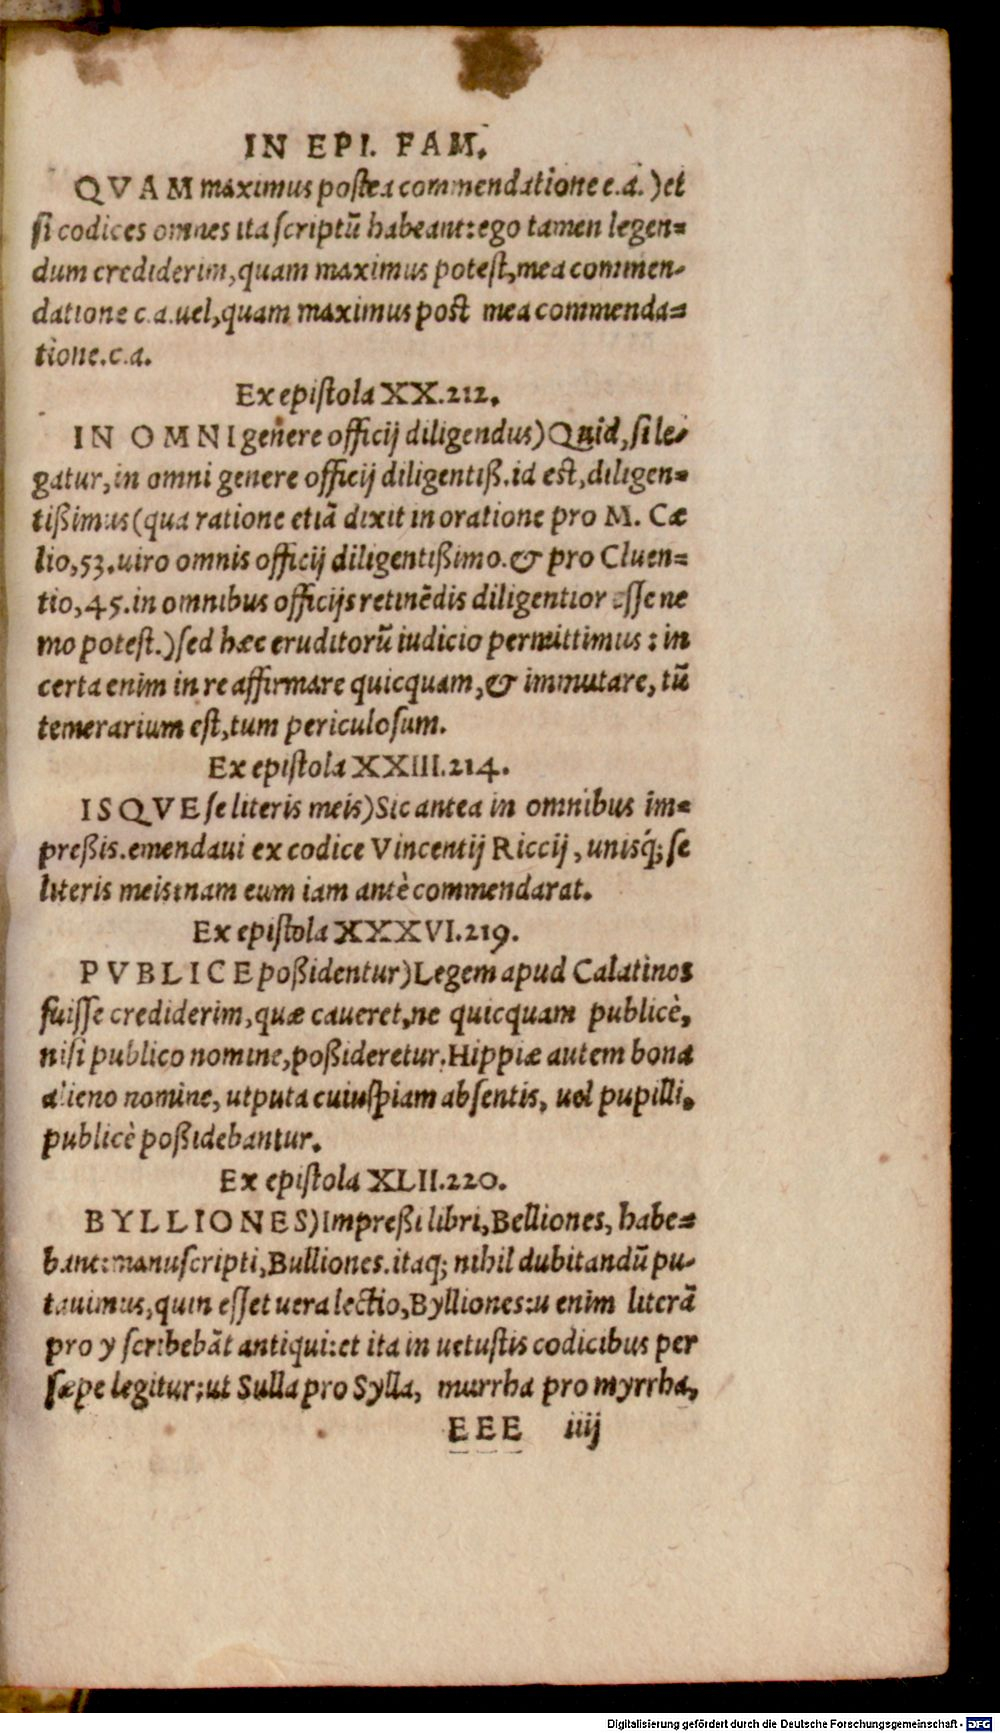 IN EPI. FAM.
QVAM maximus postea commendatione c.a.) et
si codices omnes ita scriptũ habeant: ego tamen legen=
dum crediderim, quam maximus potest, mea commen-
datione c.a. uel, quam maximus post mea commenda=
tione.c.a.
Ex epistola XX.212.
IN OMNI genere officij diligendus) Quid, si le-
gatur, in omni genere officij diligentiß. id est, diligen=
tißimus (qua ratione etiã dixit in oratione pro M. Cæ
lio, 53. uiro omnis officij diligentißimo. & pro Cluen=
tio, 45. in omnibus officijs retinẽdis diligentior esse ne
mo potest.) sed hæc eruditorũ iudicio permittimus: in
certa enim in re affirmare quicquam, & immutare, tũ
temerarium est, tum periculosum.
Ex epistola XXIII.214.
ISQVE se literis meis) Sic antea in omnibus im=
preßis. emendaui ex codice Vincentij Riccij, unisq́; se
literis meis: nam eum iam antè commendarat.
Ex epistola XXXVI.219.
PVBLICE poßidentur) Legem apud Calatinos
fuisse crediderim, quæ caueret, ne quicquam publicè,
nisi publico nomine, poßideretur. Hippiæ autem bona
alieno nomine, utputa cuiuspiam absentis, uel pupilli,
publicè poßidebantur.
Ex epistola XLII.220.
BYLLIONES) Impreßi libri, Belliones, habe=
bant: manuscripti, Bulliones. itaq; nihil dubitandũ pu-
tauimus, quin esset uera lectio, Bylliones: u enim literã
pro y scribebãt antiqui: et ita in uetustis codicibus per
sæpe legitur: ut Sulla pro Sylla, murrha pro myrrha,
EEE iiij
Digitalisierung gefördert durch die Deutsche Forschungsgemeinschaft - DFG